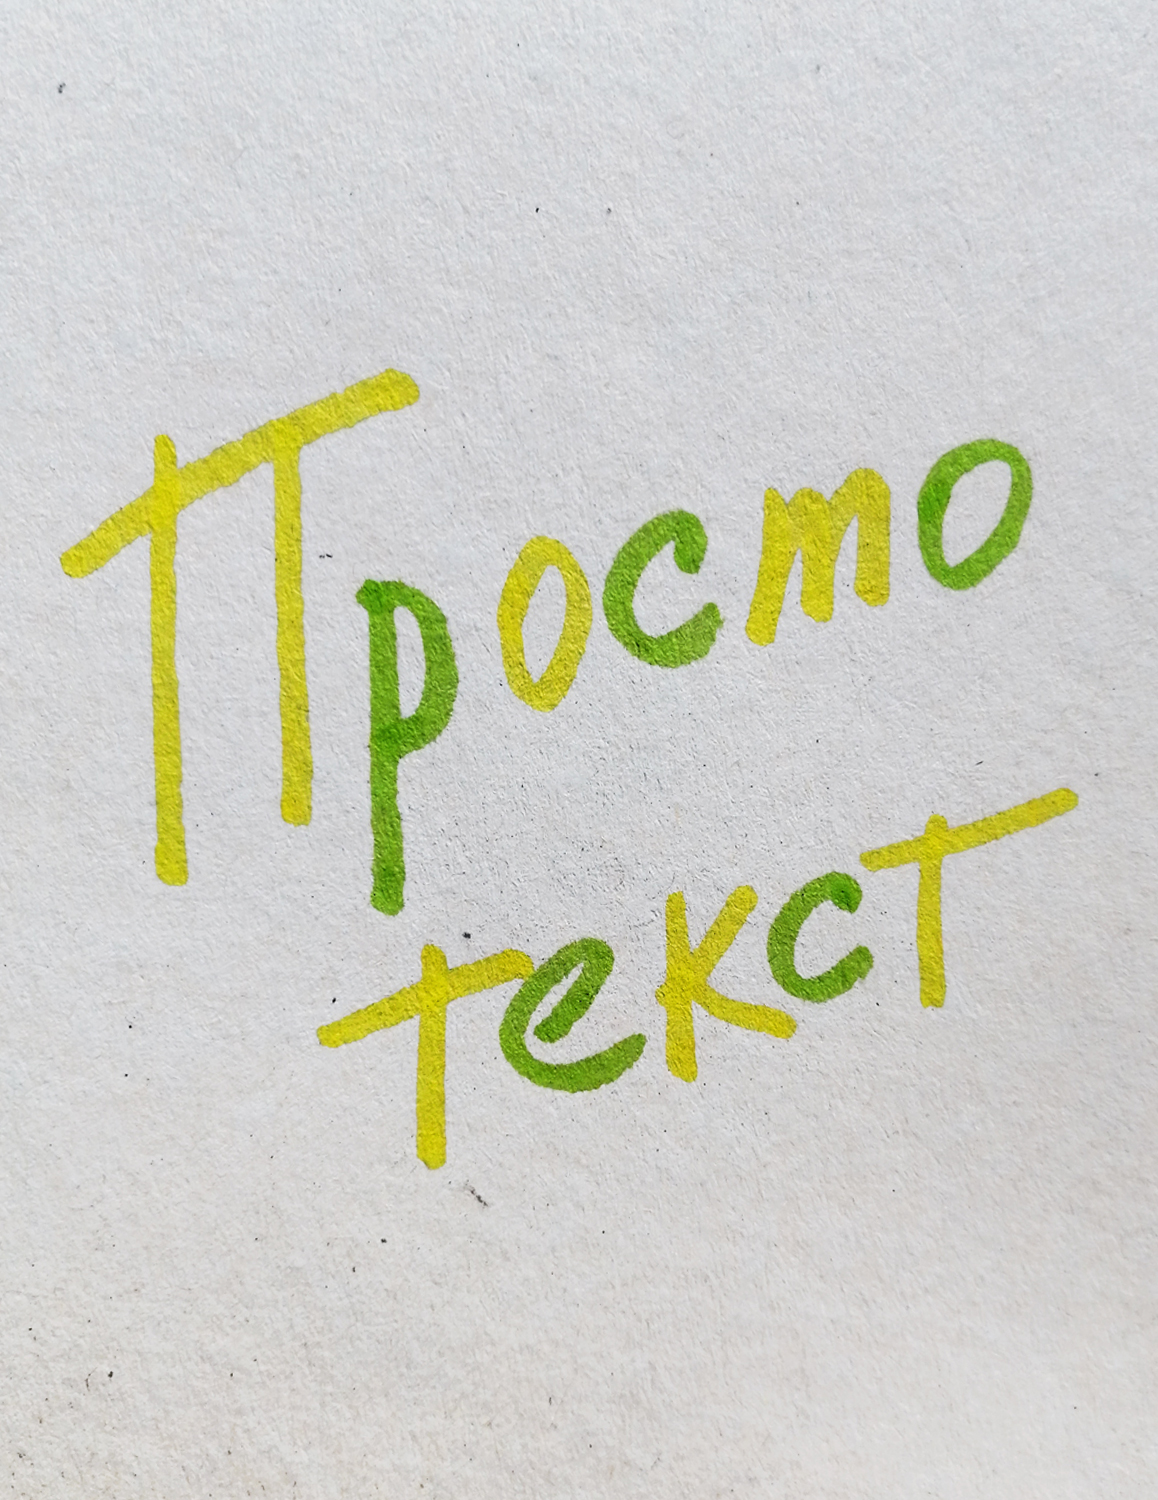 Просто
текст